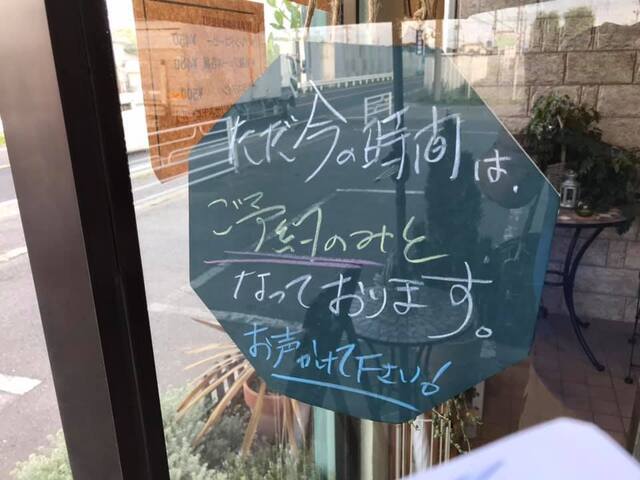 ただ今の時間は、
ご予約のみと
なっております。
お声かけて下さい!
¥450